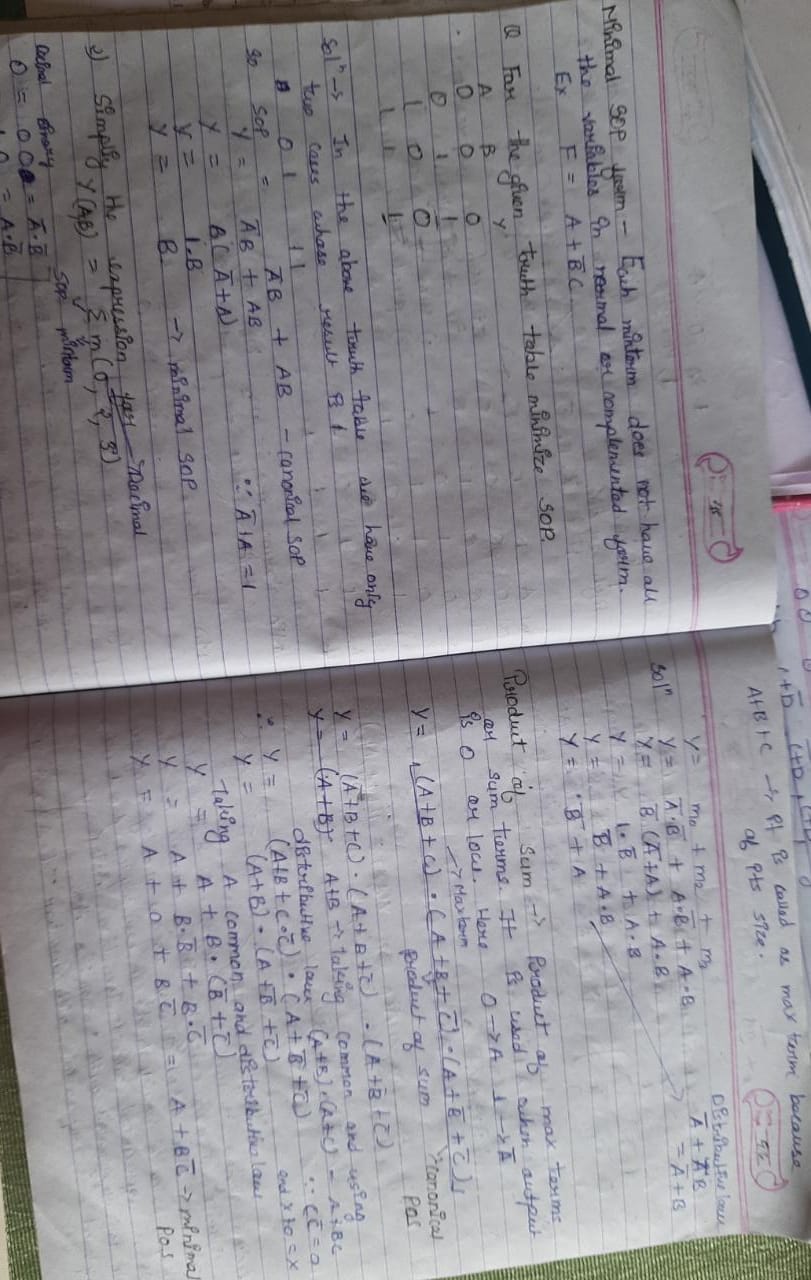 Minimal SOP form - Each minterm does not have all
the variables in normal or complemented form.
Ex F = A + B̅C
Q For the given truth table minimize SOP.
A B Y
0 0 0
0 1 1
1 0 0
1 1 1
Solⁿ → In the above truth table we have only
two cases whose result is 1
0 1 1 1
So SOP = A̅B + AB - canonical SOP
Y = A̅B + AB
Y = B(A̅+A) ∵ A̅+A = 1
Y = 1.B
Y = B. → minimal SOP
2) Simplify the expression for Decimal
Y(A,B) = Σ m(0, 2, 3)
SOP minterm
Decimal Binary
0 = 00 = A̅·B̅
10 = A·B̅
A+B+C → It is called as max term because
of its size.
Y = m₀ + m₂ + m₃
Solⁿ Y = A̅·B̅ + A·B̅ + A·B
Y = B̅(A̅+A) + A·B
Y = 1·B̅ + A·B
Y = B̅ + A·B
Y = B̅ + A
Distributive law
A̅ + A̅B
= A+B
Product of Sum → Product of max terms
or sum terms. It is used when output
is 0 or low. Here 0→A 1→A̅
→ Maxterm
Y = (A+B+C)·(A+B+C̅)·(A+B̅+C̅)
Product of sum canonical
POS
Y = (A+B+C)·(A+B+C̅)·(A+B̅+C̅)
Y = (A+B) A+B → Taking common and using
distributive law (A+B)·(A+C) = A+BC
∴ Y = (A+B+C·C̅)·(A+B̅+C̅) ∵ CC̅=0
Y = (A+B)·(A+B̅+C̅) and x+0=x
Taking A common and distributive law
Y = A + B·(B̅+C̅)
Y = A + B·B̅ + B·C̅
Y = A + 0 + B.C̅ = A + BC̅ → minimal
POS